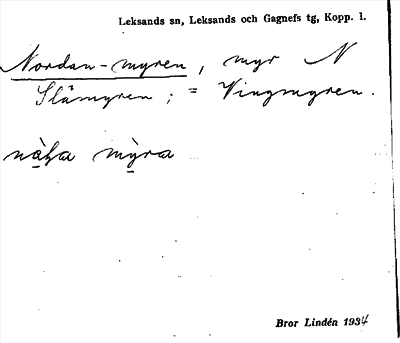 Leksands sn, Leksands och Gagnefs tg, Kopp. l.
Nordan-myren, myr N
Slåmyren; = Vingmyren.
myra
Bror Lindén 1934